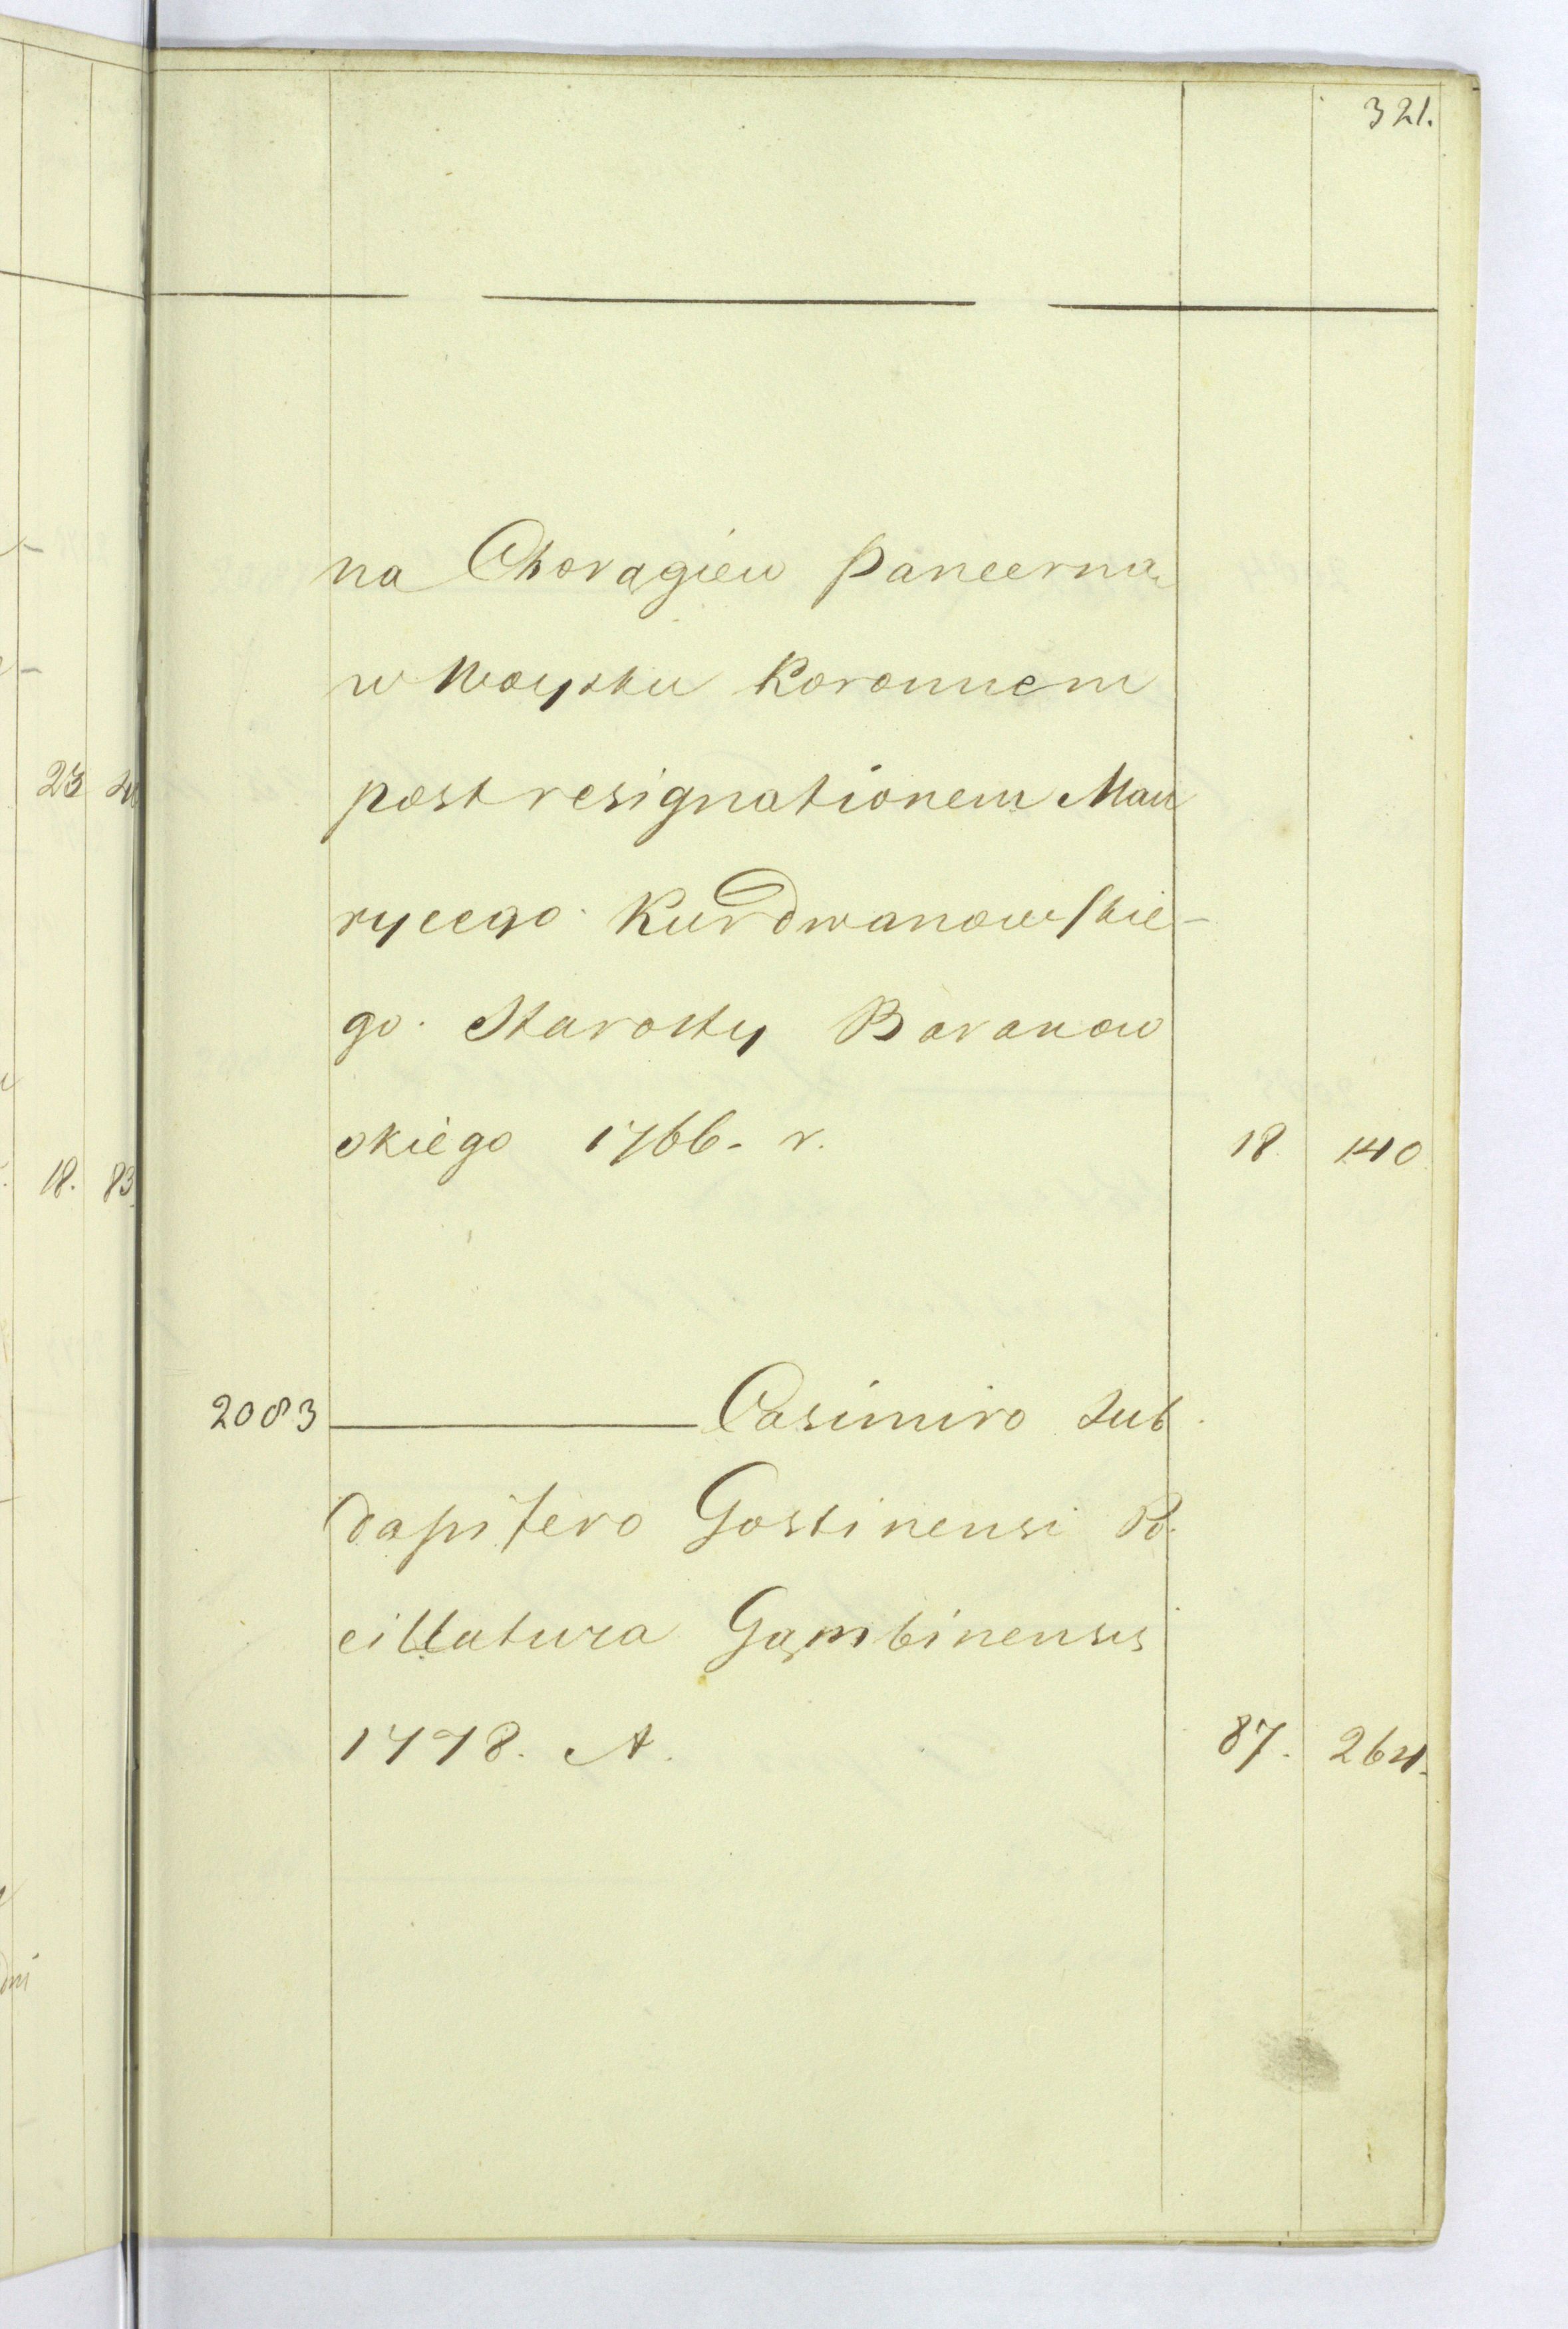 321.
na Chorągiew Pancerną
w Woysku Koronnem
post resignationem Mau
rycego Kurdwanowskie-
go. Starosty Baranow
skiego 1766. r. 18. 140
2083 ——— Casimiro Sub
dapifero Gostinensi Po.
cillatura Gąmbinensis
1778. A. 87. 264.
23
18. 83.